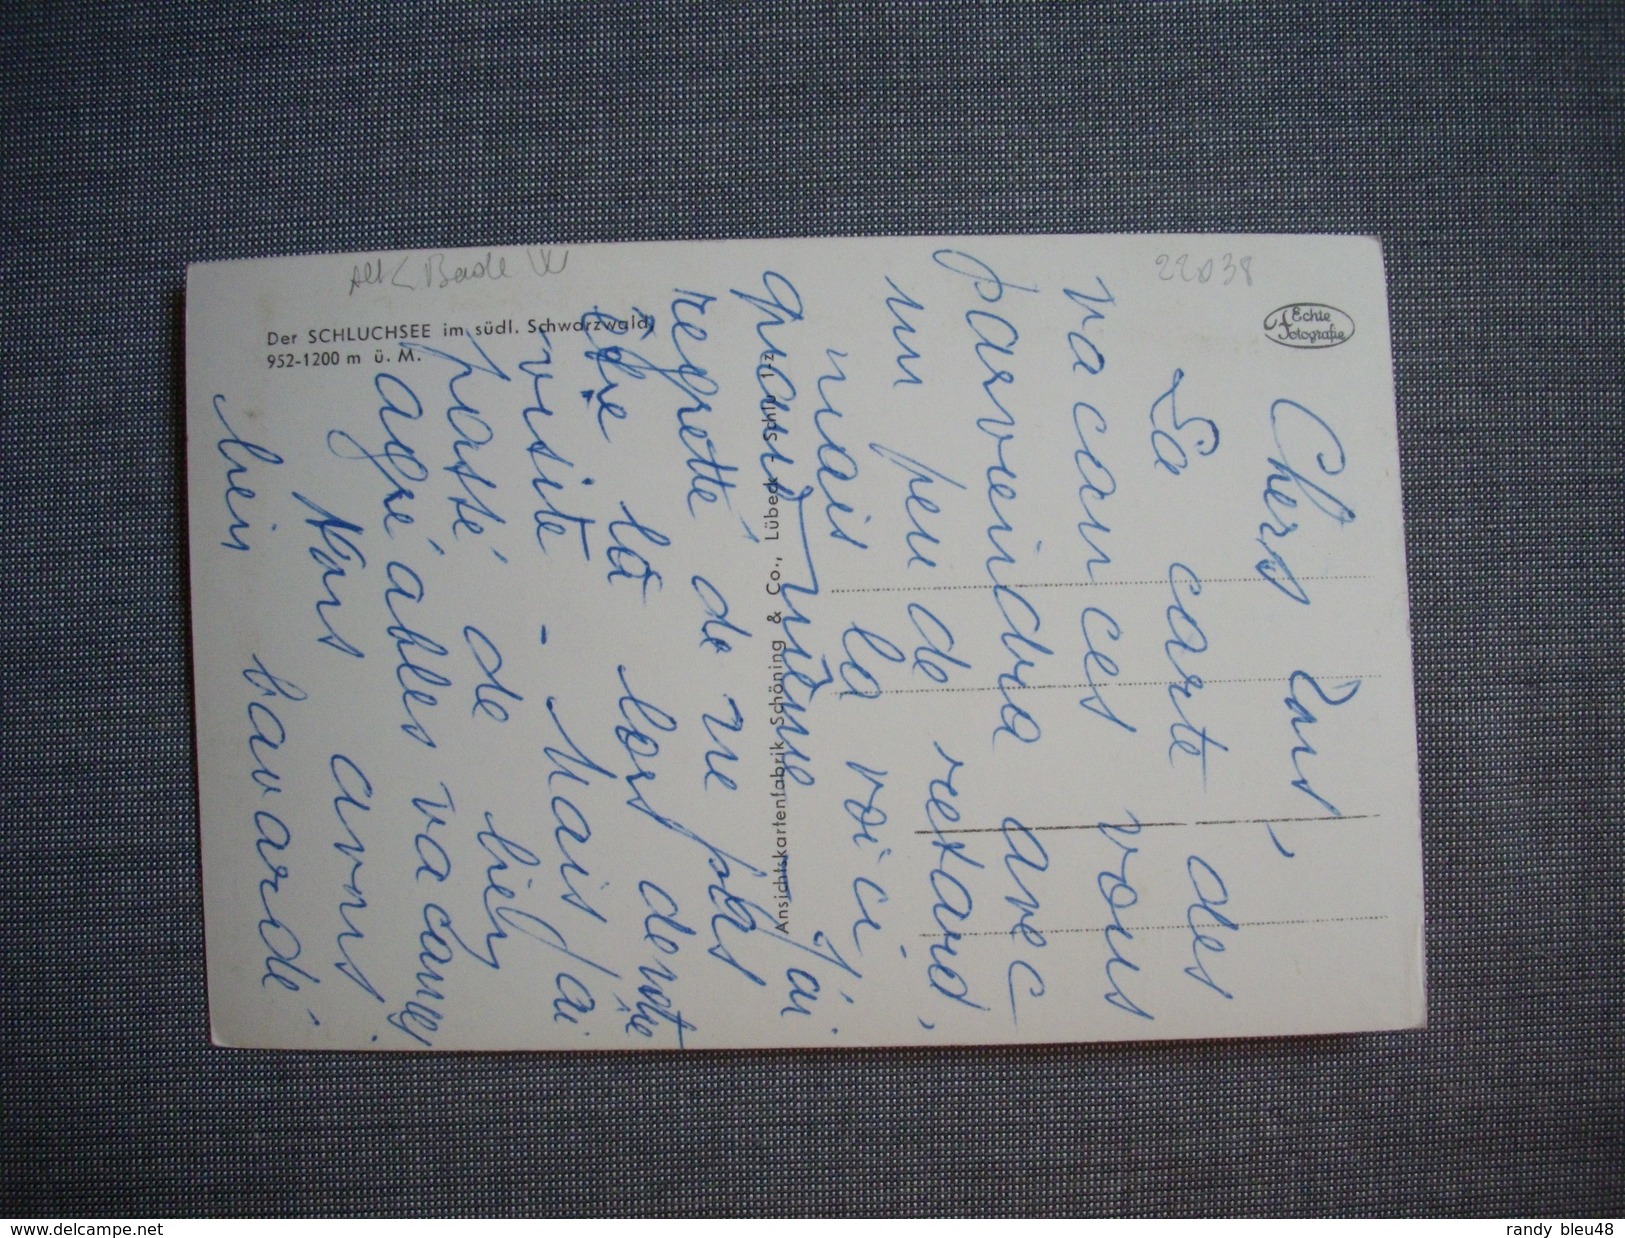 Der SCHLUCHSEE im südl. Schwarzwald,
952-1200 m ü. M.
22038
Echte
Fotografie
Ansichtskartenfabrik Schöning & Co., Lübeck - Schlu
Chers Vous,
La carte des
vacances vous
parviendra avec
un peu de retard,
mais la voici
quand même. J'ai
regretté de ne pas
être là lors de votre
visite - Mais j'ai
passé de bien
agréables vacances
Nous avons
bien bavardé.
www.delcampe.net
randy_bleu48